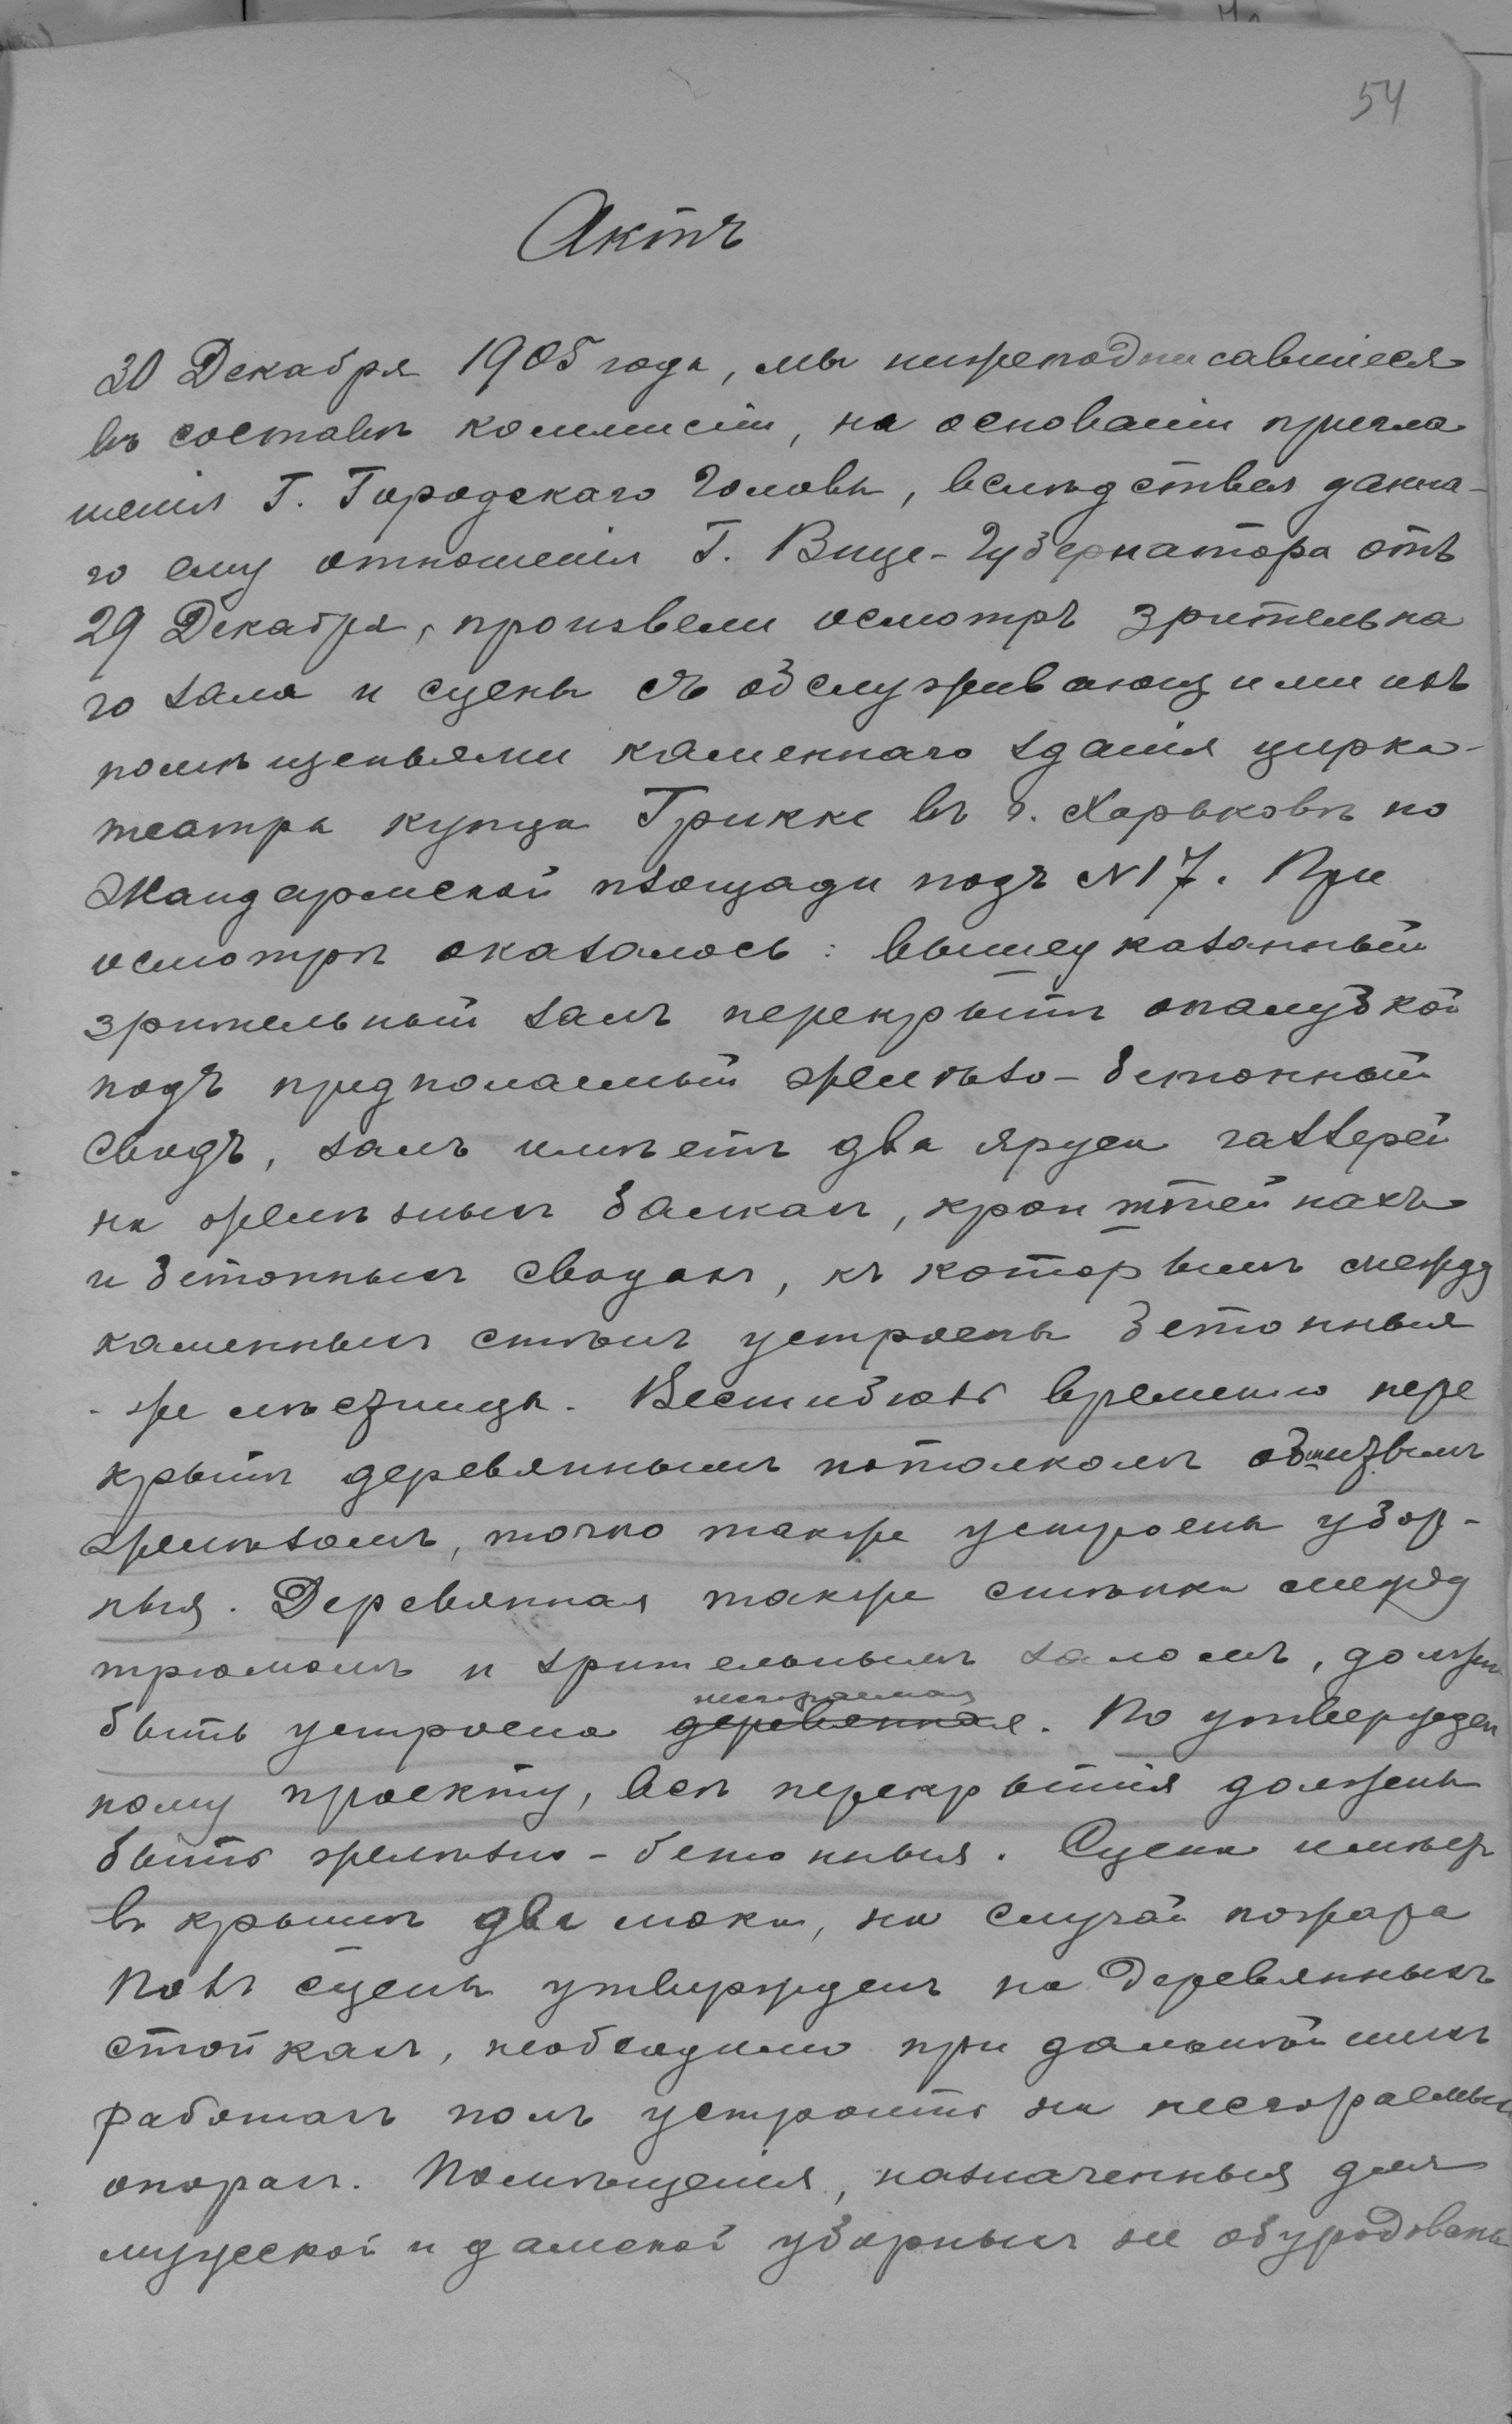 54
Актъ
30 Декабря 1905 года, мы нижеподписавшіеся
въ составѣ коммисіи, на основаніи пригла
шенія Г. Городскаго Головы, вслѣдствея данна-
го ему отношенія Г. Вице-Губернатора отъ
29 Декабря, произвели осмотръ зрительна
го зала и сцены съ обслуживающими ихъ
помѣщеньями каменнаго зданія цирка-
театра купца Грикке въ г. Харьковѣ по
Жандармской площади подъ №17. При
осмотрѣ оказалось: вышеуказанный
зрительный залъ перекрытъ опалубкой
подъ предполаемый желѣзо-бетонный
сводъ, залъ имѣетъ два яруса галлерей
на желѣзныхъ балкахъ, кронштейнахъ
и бетонныхъ сводахъ, къ которымъ между
каменныхъ стѣнъ устроены бетонныя
же лѣсницы. Вестибюль временно пере
крытъ деревяннымъ потолкомъ обшитымъ
желѣзомъ, точно также устроены убор-
ныя. Деревянная также стѣнка между
трюмомъ и зрительнымъ заломъ, должна
несгораемая
быть устроена деревянная. По утвержден
ному проекту, всѣ перекрытія должены
быть желѣзно-бетонныя. Сцена имѣетъ
въ крышѣ два люка, на случай пожара
Полъ сцены утвержденъ на деревянныхъ
стойкахъ, необходимо при дальнѣйшихъ
работахъ полъ устроить на несгораемых
опорахъ. Помѣщенія, назначенныя для
мужской и дамской уборныхъ не оборудованы